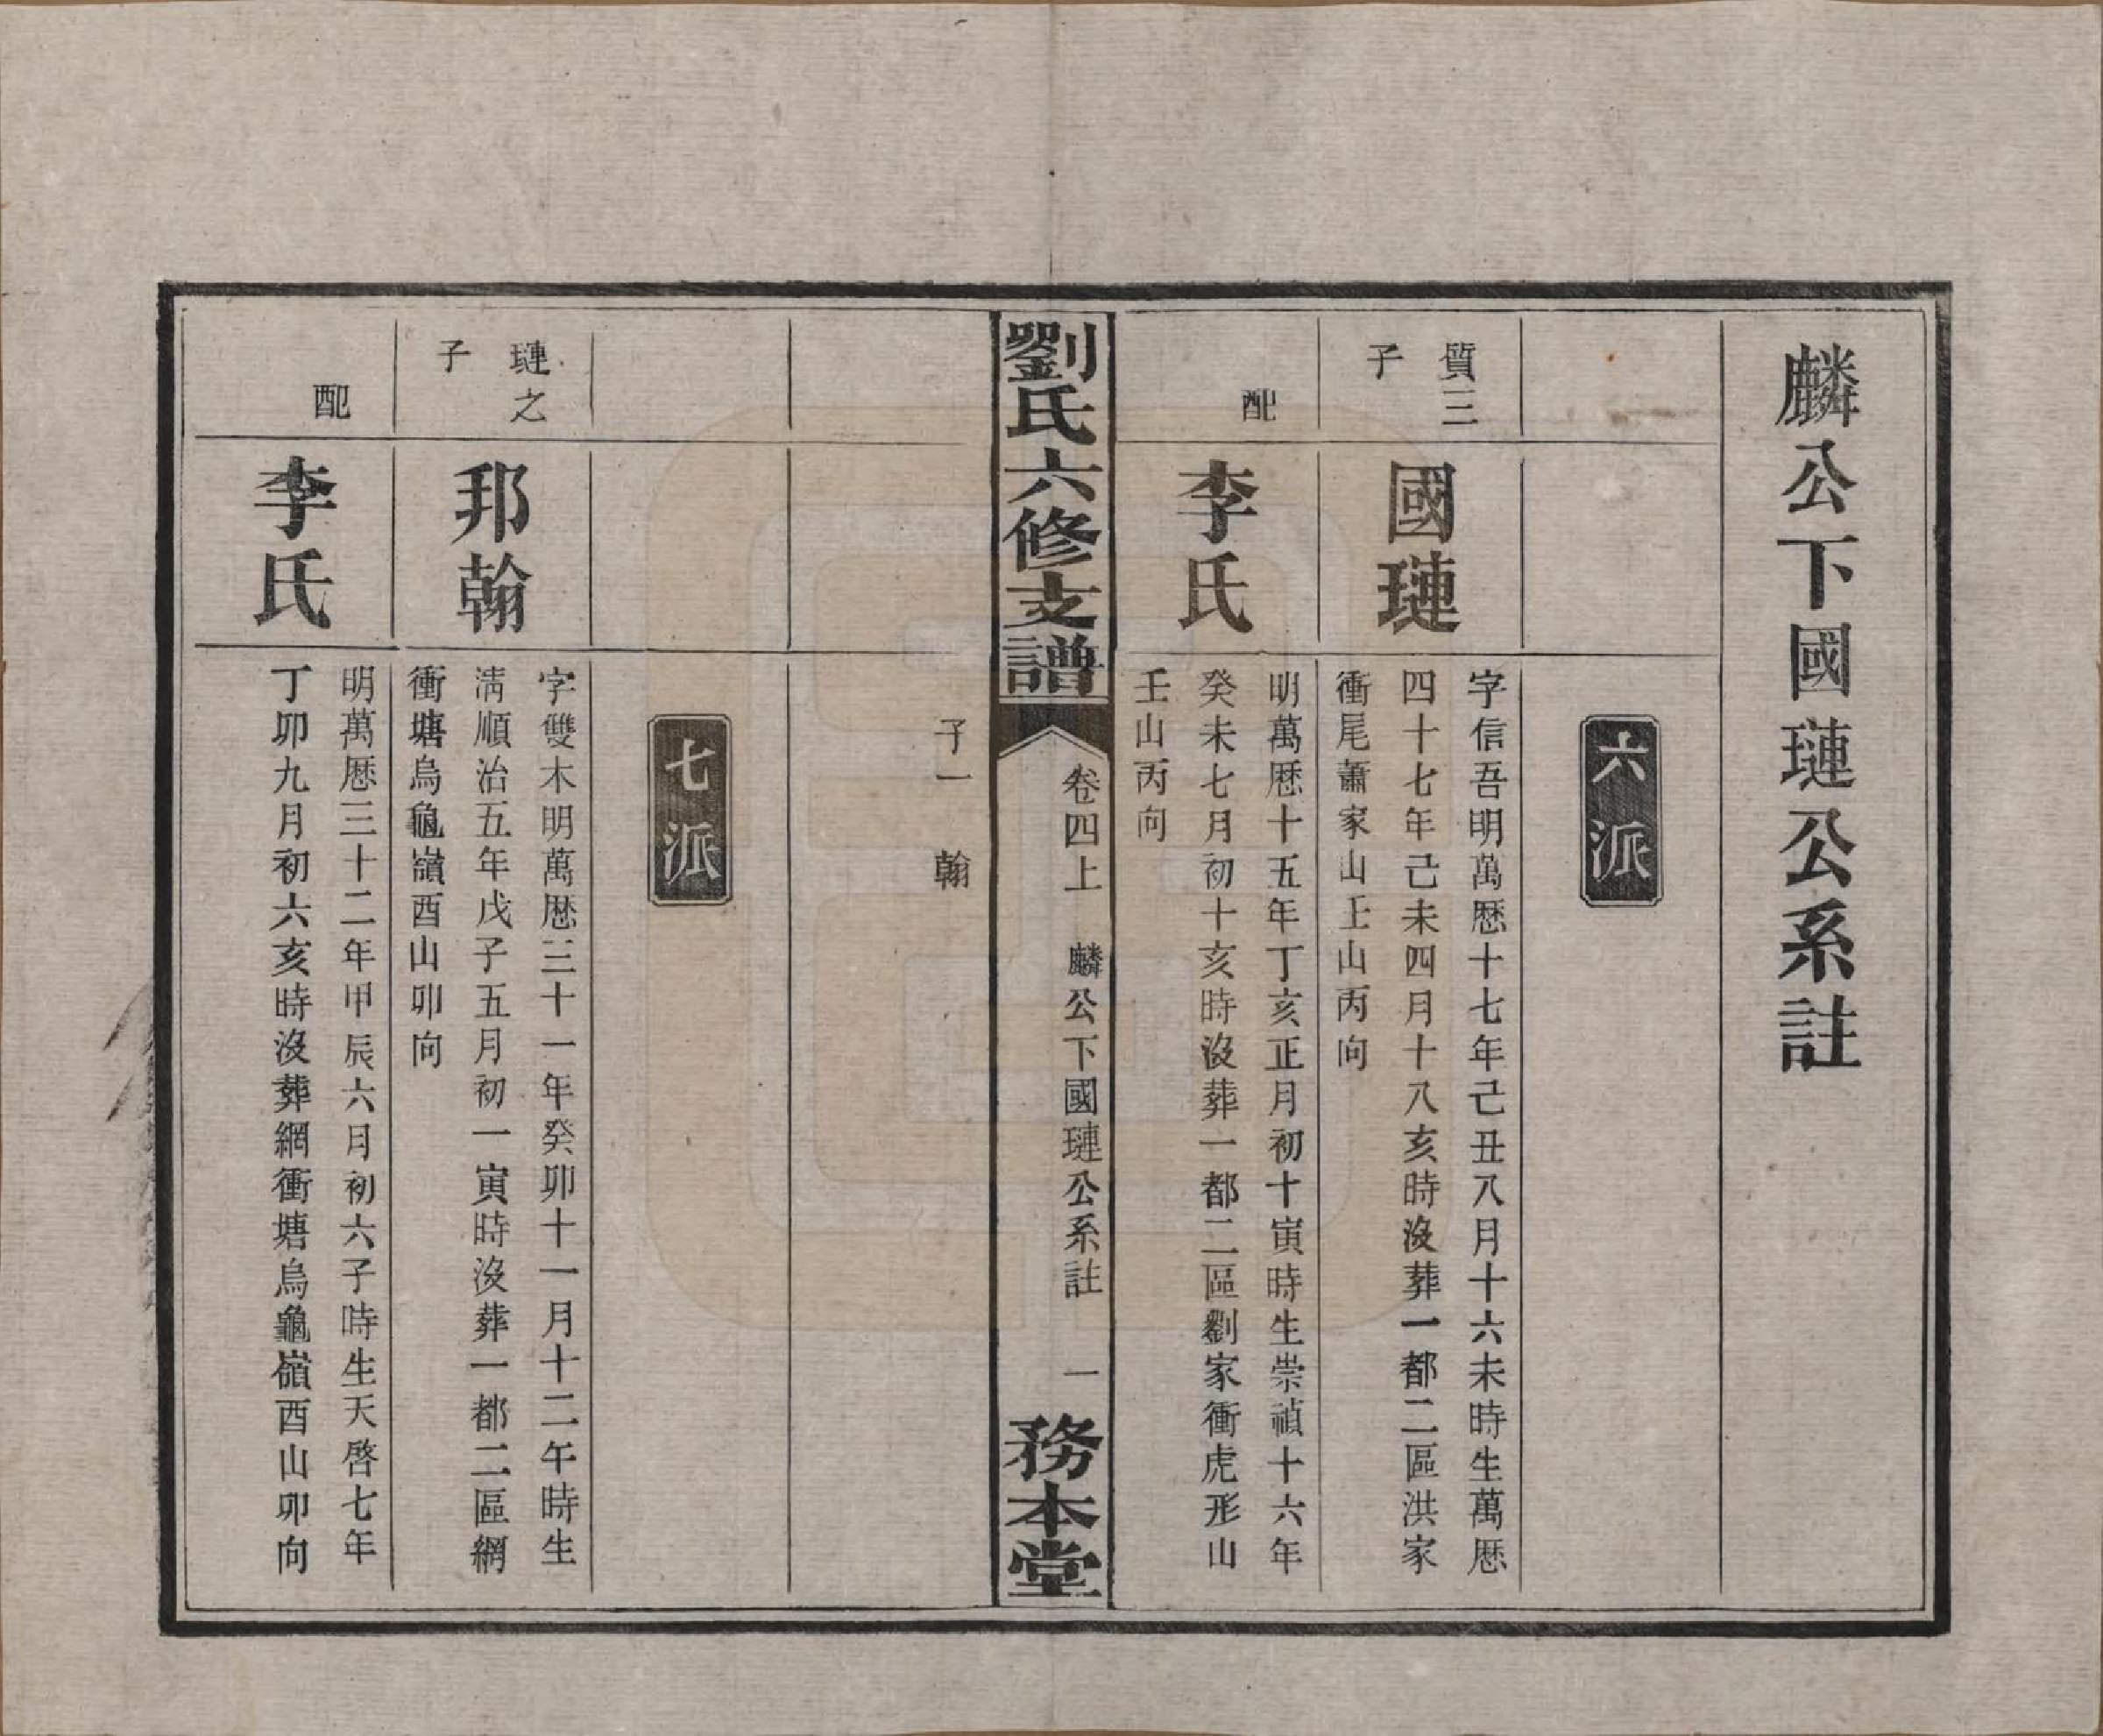 麟公下國璉公系註
六派
質三
子
國璉
字信吾明萬歷十七年己丑八月十六未時生萬歷
四十七年己未四月十八亥時沒葬一都二區洪家
衝尾蕭家山壬山丙向
配
李氏
明萬歷十五年丁亥正月初十寅時生崇禎十六年
癸未七月初十亥時沒葬一都二區劉家衝虎形山
壬山丙向
劉氏六修支譜
卷四上
麟公下國璉公系註
一
務本堂
子一 翰
七派
璉之
子
邦翰
字雙木明萬歷三十一年癸卯十一月十二午時生
淸順治五年戊子五月初一寅時沒葬一都二區網
衝塘烏龜嶺酉山卯向
配
李氏
明萬歷三十二年甲辰六月初六子時生天啓七年
丁卯九月初六亥時沒葬網衝塘烏龜嶺酉山卯向